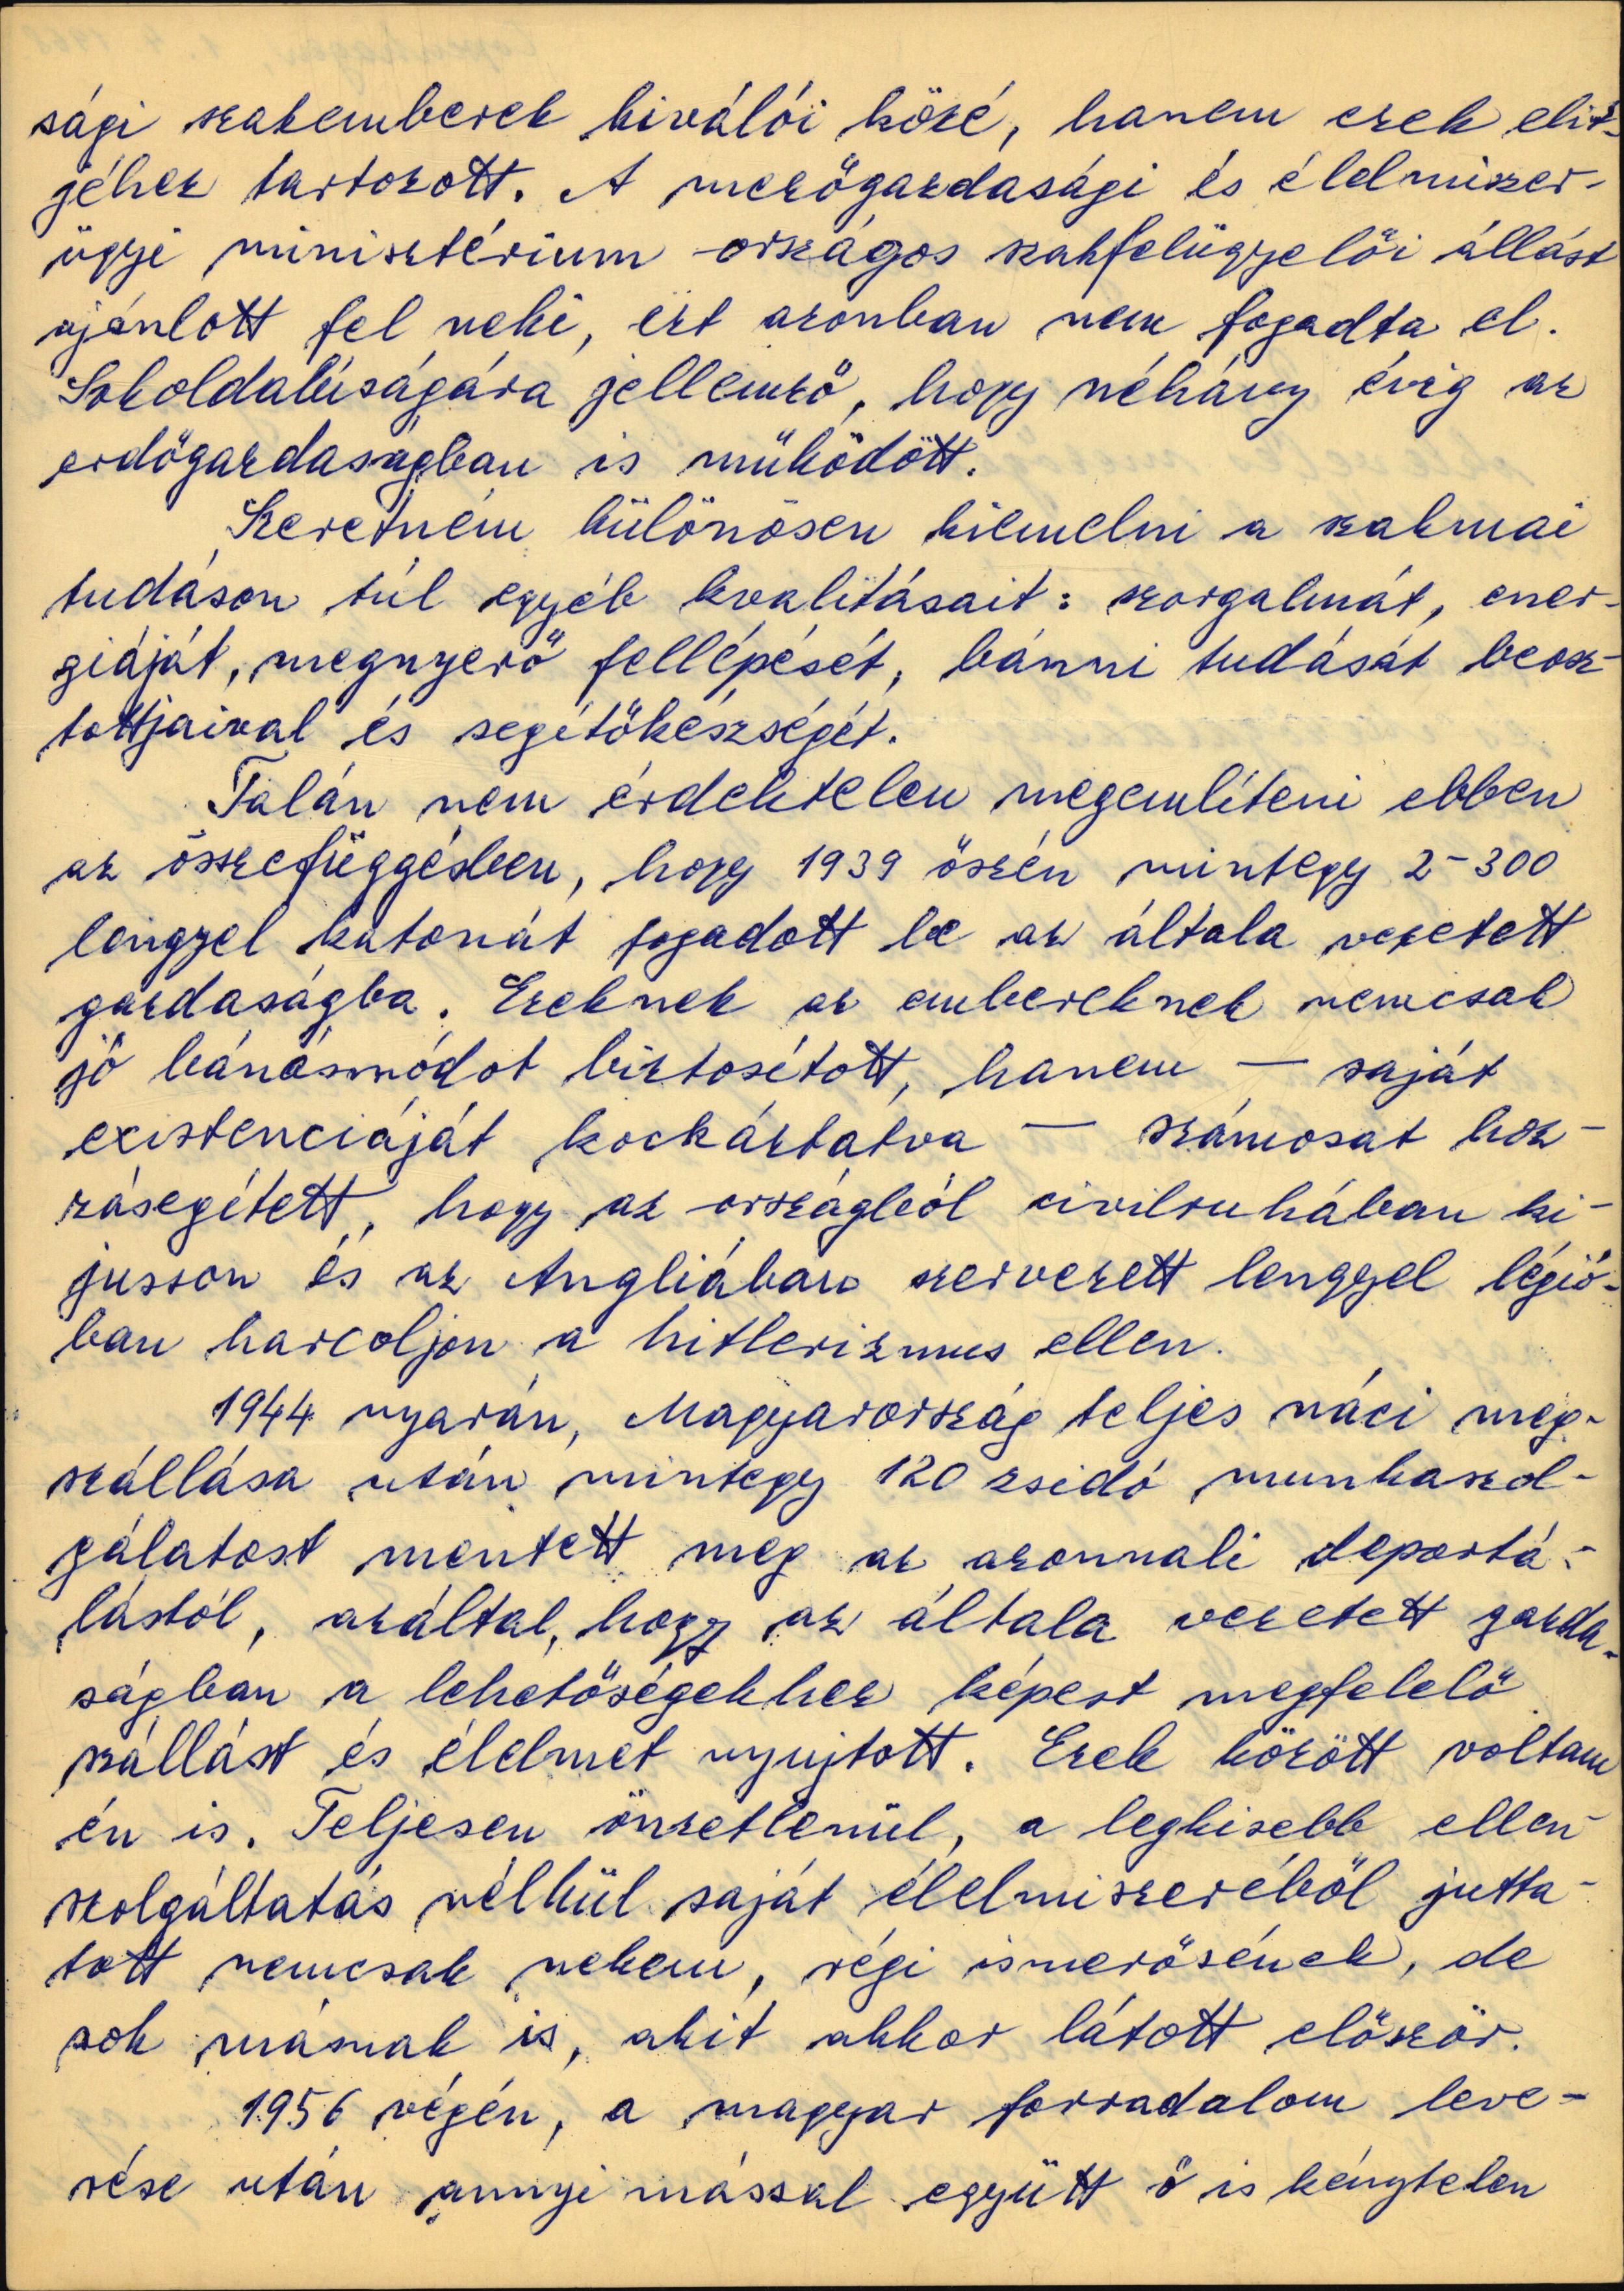 sági szakemberek kiválói közé, hanem ezek elit-
jéhez tartozott. A mezőgazdasági és élelmiszer-
ügyi minisztérium országos szakfelügyelői állást
ajánlott fel neki, ezt azonban nem fogadta el.
Sokoldalúságára jellemző, hogy néhány évig az
erdőgazdaságban is működött.
Szeretném különösen kiemelni a szakmai
tudáson túl egyéb kvalitásait: szorgalmát, ener-
giáját, megnyerő fellépését, bánni tudását beosz-
tottjaival és segítőkészségét.
Talán nem érdektelen megemlíteni ebben
az összefüggésben, hogy 1939 őszén mintegy 2-300
lengyel katonát fogadott be az általa vezetett
gazdaságba. Ezeknek az embereknek nemcsak
jó bánásmódot biztosított, hanem — saját
existenciáját kockáztatva — számosat hoz-
zásegített, hogy az országból civilruhában ki-
jusson és az Angliában szervezett lengyel légió-
ban harcoljon a hitlerizmus ellen.
1944 nyarán, Magyarország teljes náci meg-
szállása után mintegy 120 zsidó munkaszol-
gálatost mentett meg az azonnali deportá-
lástól, azáltal, hogy az általa vezetett gazda-
ságban a lehetőségekhez képest megfelelő
szállást és élelmet nyujtott. Ezek között voltam
én is. Teljesen önzetlenül, a legkisebb ellen-
szolgáltatás nélkül saját élelmiszeréből jutta-
tott nemcsak nekem, régi ismerősének, de
sok másnak is, akit akkor látott először.
1956 végén, a magyar forradalom leve-
rése után annyi mással együtt ő is kénytelen